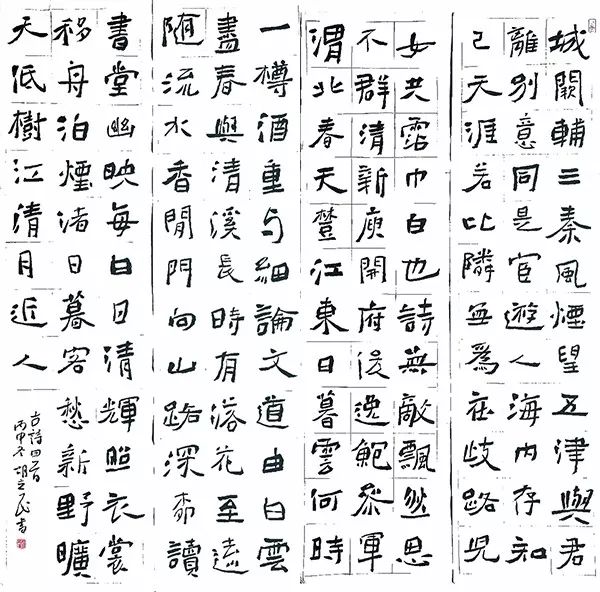 城闕輔三秦風煙望五津與君
離別意同是宦遊人海内存知
己天涯若比隣無爲在歧路兒
女共霑巾白也詩無敵飄然思
不群清新庾開府俊逸鮑參軍
渭北春天樹江東日暮雲何時
一樽酒重与細論文道由白雲
盡春與清溪長時有落花至遠
随流水香閒門向山路深柳讀
書堂幽映每白日清輝照衣裳
移舟泊煙渚日暮客愁新野曠
天低樹江清月近人
古詩四首
丙申冬胡立民書